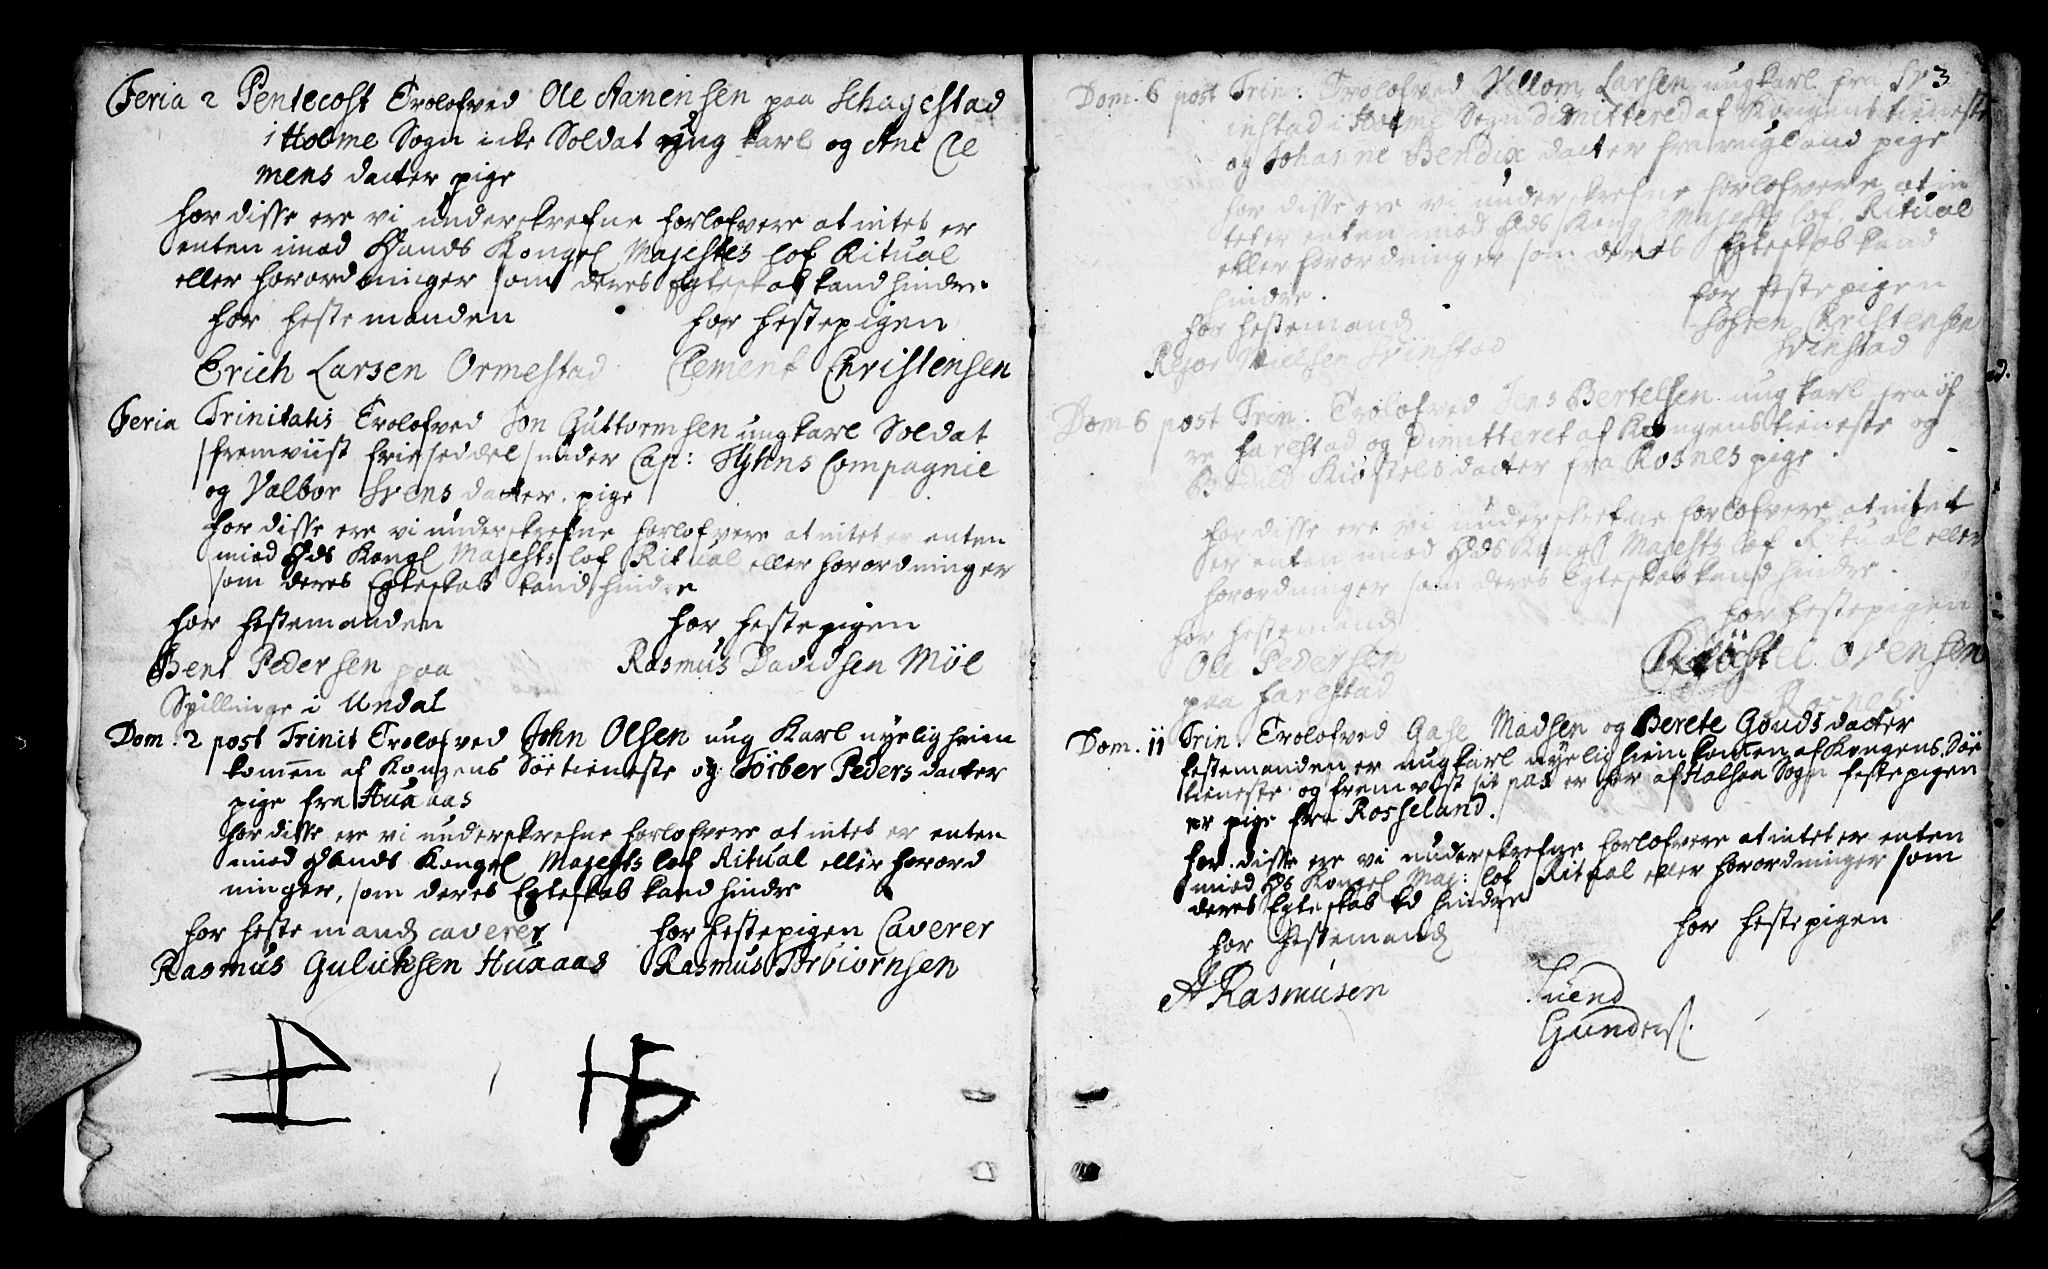 Feria 2 Pentecost Trolofved Ole Aanensen paa Schagestad
i Holme Sogn icke Soldat ung karl og Ane Cle
mens dacter pige
for disse ere vi underskrefne forlofvere at intet er
enten imod Hands Kongel Majestes lof Ritual
eller forordninger som deres Egteskab kand hindre.
for festemanden for festepigen
Erich Larsen Ormestad Clement Christensen
Feria Trinitatis Trolofved Jon Guttormsen ungkarl Soldat
fremviist friseddel under Cap: Syhns Compagnie
og Valbor Svens dacter pige
for disse ere vi underskrefne forlofvere at intet er enten
imod Hds Kongl Majests lof Ritual eller forordninger
som deres Egteskab kand hindre
for festemanden for festepigen
Bent Pedersen paa Rasmus Davidsen Möl
Spillinge i Undal
Dom. 2 post Trinit Trolofved John Olsen ung Karl nyelig hiem
komen af Kongens Söetieneste og Törber Peders dacter
pige fra Huaaas
for disse ere vi underskrefne forlofvere at intet er enten
imod Hands Kongel Majests lof Ritual eller forord
ninger, som deres Egteskab kand hindre
for festemand caverer for festepigen Caverer
Rasmus Guliksen Huaaas Rasmus Torbiörnsen
3
Dom. 6 post Trin: Trolofved Villom Larsen ungkarl fra Sv
instad i Holme Sogn dimittered af Kongens tieneste
og Johanne Bendix dacter fra ugland pige
for disse ere vi underskrefne forlofvere at in
tet er enten imod Hds Kong Majests lof. Ritual
eller forordninger som deres Egteskab kand
hindre.
for festemand for festepigen
Rejar Nielsen Svinstad Sofren Christensen
Svinstad
Dom 6 post Trin: Trolofved Jens Bertelsen ungkarl fra öf
re farestad og dimitteret af Kongens tieneste og
Bodild Kiöstels dacter fra Rosnes pige.
for disse ere vi underskrefne forlofvere at intet
er enten imod Hds Kongl Majests lof Ritual eller
forordninger som deres Egteskab kand hindre.
for festemand for festepigen
Ole Pedersen Kiöstel Ovensen
paa farestad Rosnes
Dom. 11 Trin. Trolofved Gahe Madsen og Berete Gouds dacter
festemanden er ungkarl nyelig hiemkomen af Kongens Söe
tieneste og fremviist sit pas er her af Halsaa Sogn festepigen
er pige fra Rosseland.
for disse ere vi underskrefne forlofvere at intet er enten
imod Hds Kongel Maj: lof Ritual eller forordninger som
deres Egteskab kd hindre
for festemand for festepigen
A Rasmusen Suend
Gunders.